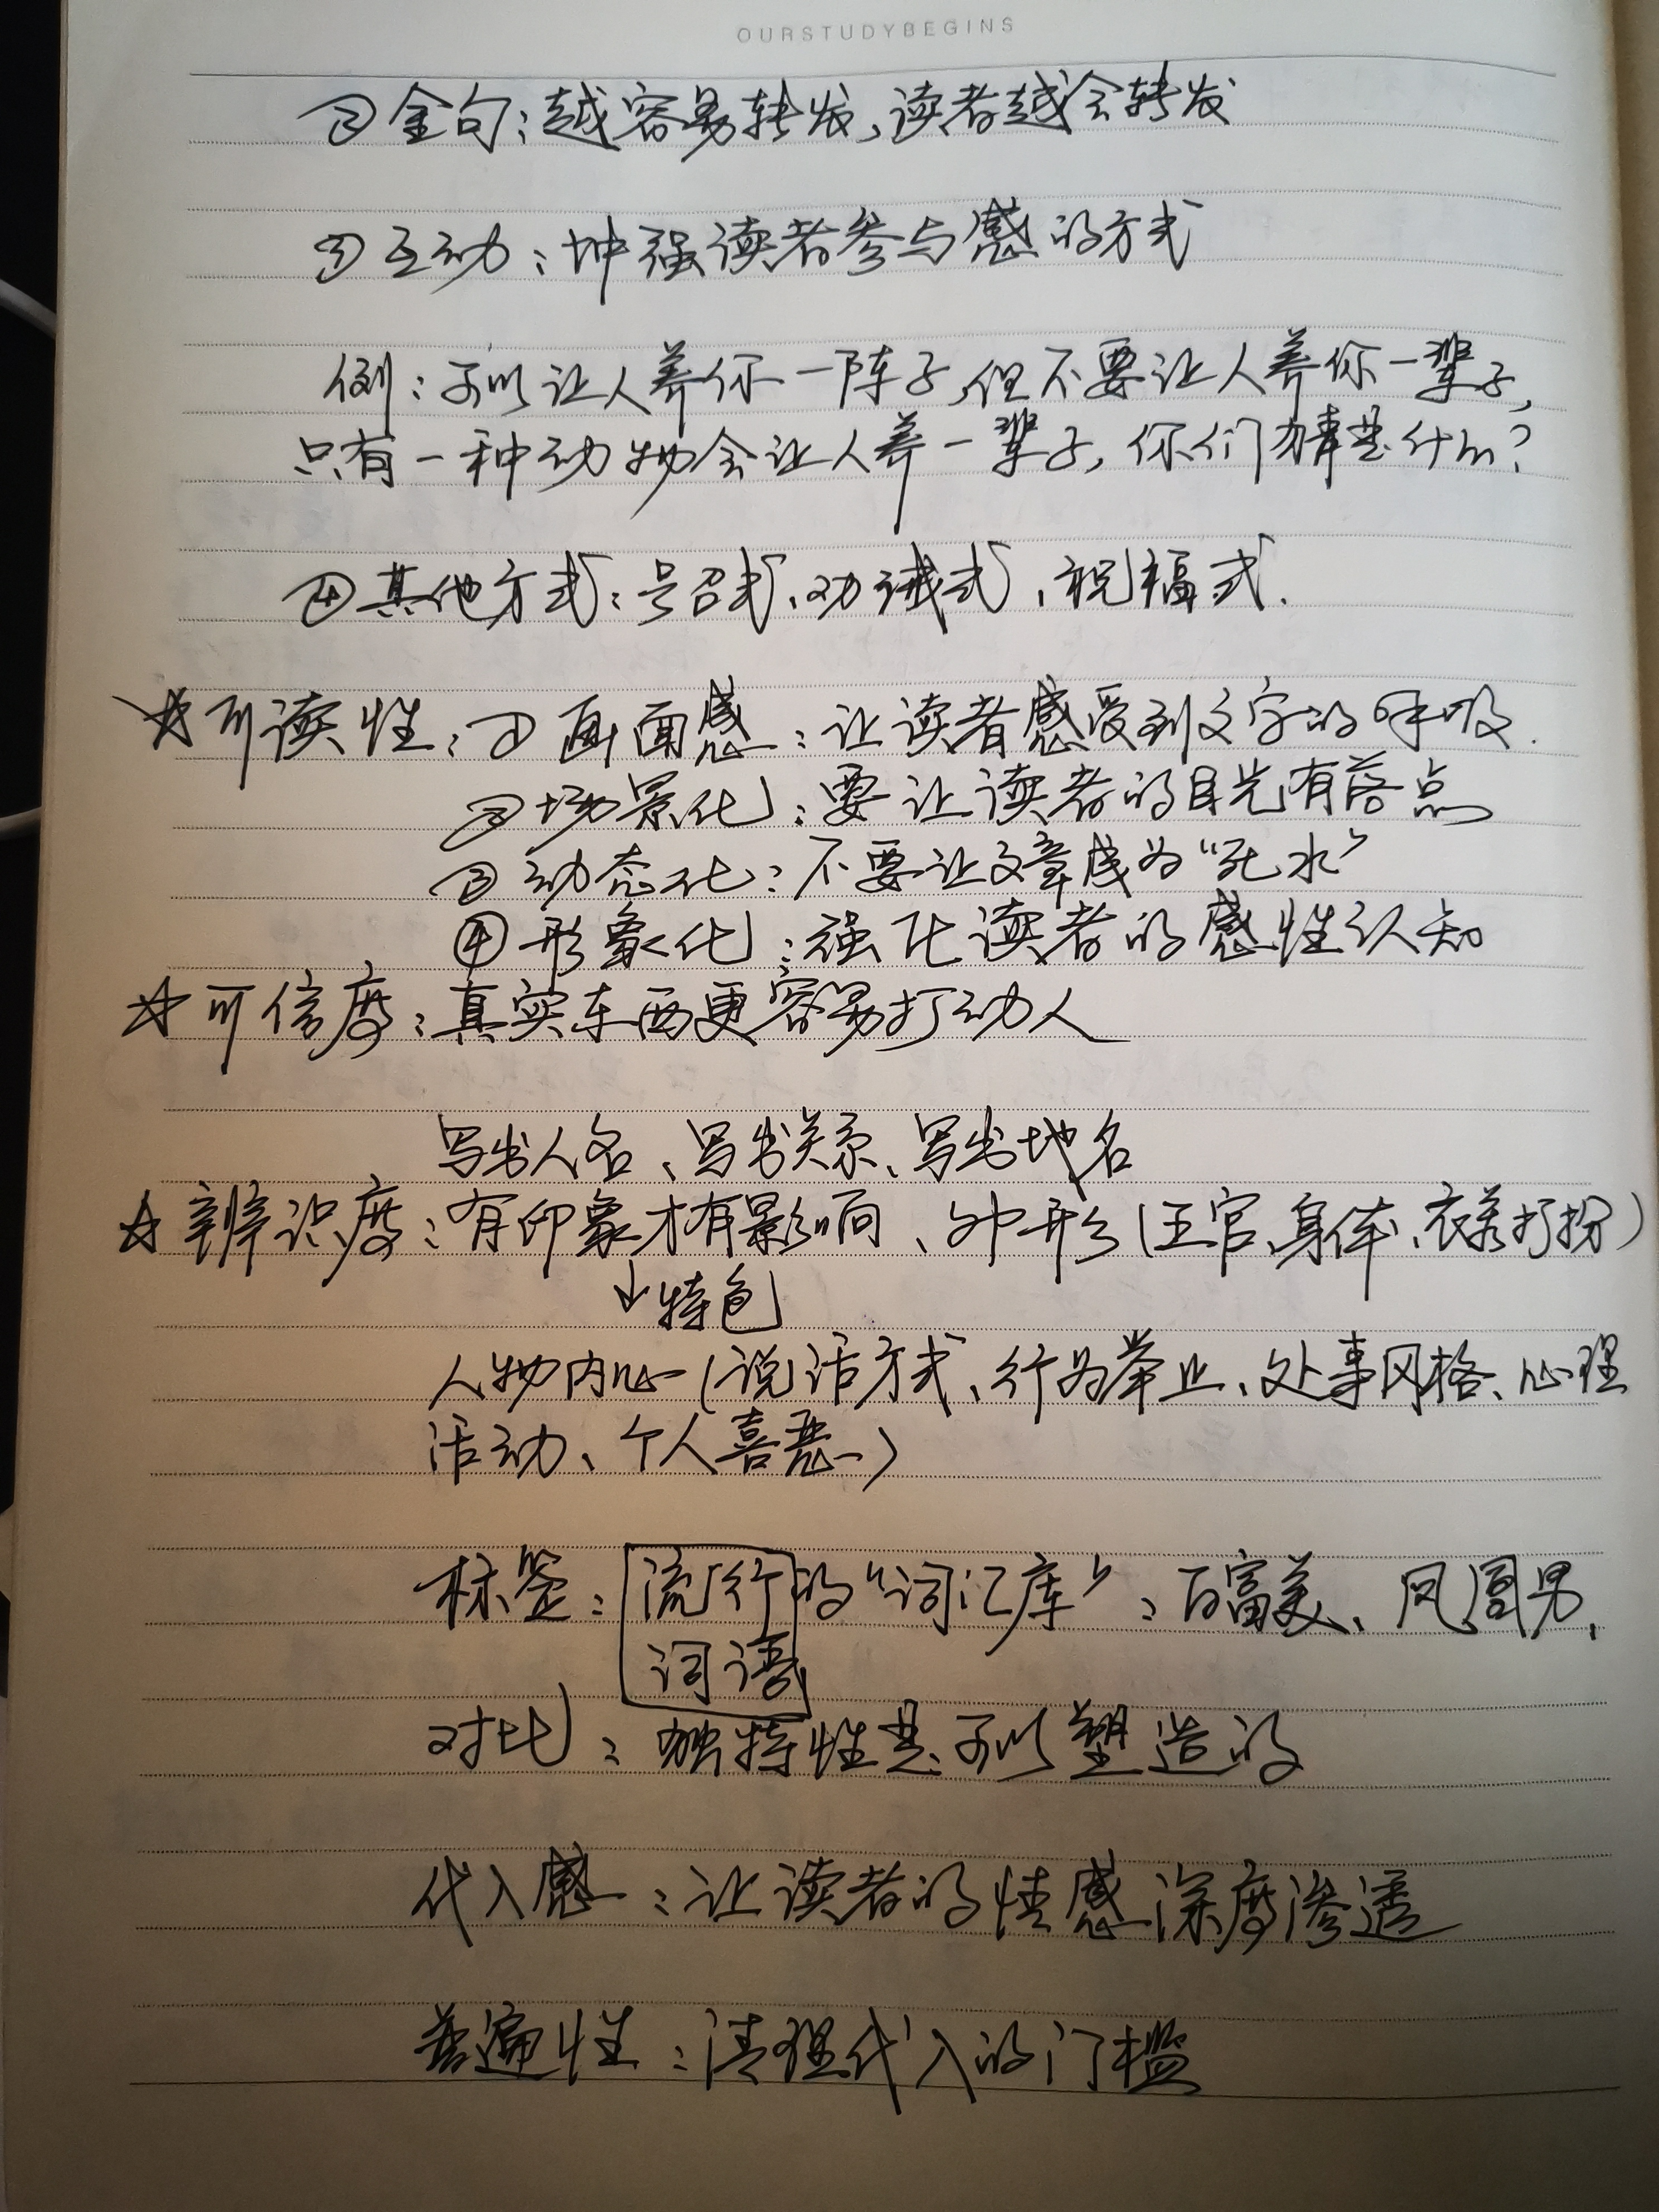 OURSTUDYBEGINS
②金句：越容易转发，读者越会转发
③互动：增强读者参与感的方式
例：可以让人养你一阵子，但不要让人养你一辈子，
只有一种动物会让人养一辈子，你们猜是什么？
④其他方式：号召式、劝诫式、祝福式.
☆可读性：①画面感：让读者感受到文字的呼吸.
②场景化：要让读者的目光有落点
③动态化：不要让文章成为“死水”
④形象化：强化读者的感性认知
☆可信度：真实东西更容易打动人
写出人名、写出关系、写出地名
☆辨识度：有印象才有影响、外形（五官、身体、衣着打扮）
↓特色
人物内心（说话方式、行为举止、处事风格、心理
活动、个人喜恶）
标签：流行的“词汇库”：白富美、凤凰男、
词语
对比：独特性是可以塑造的
代入感：让读者的情感深度渗透
普遍性：清理代入的门槛